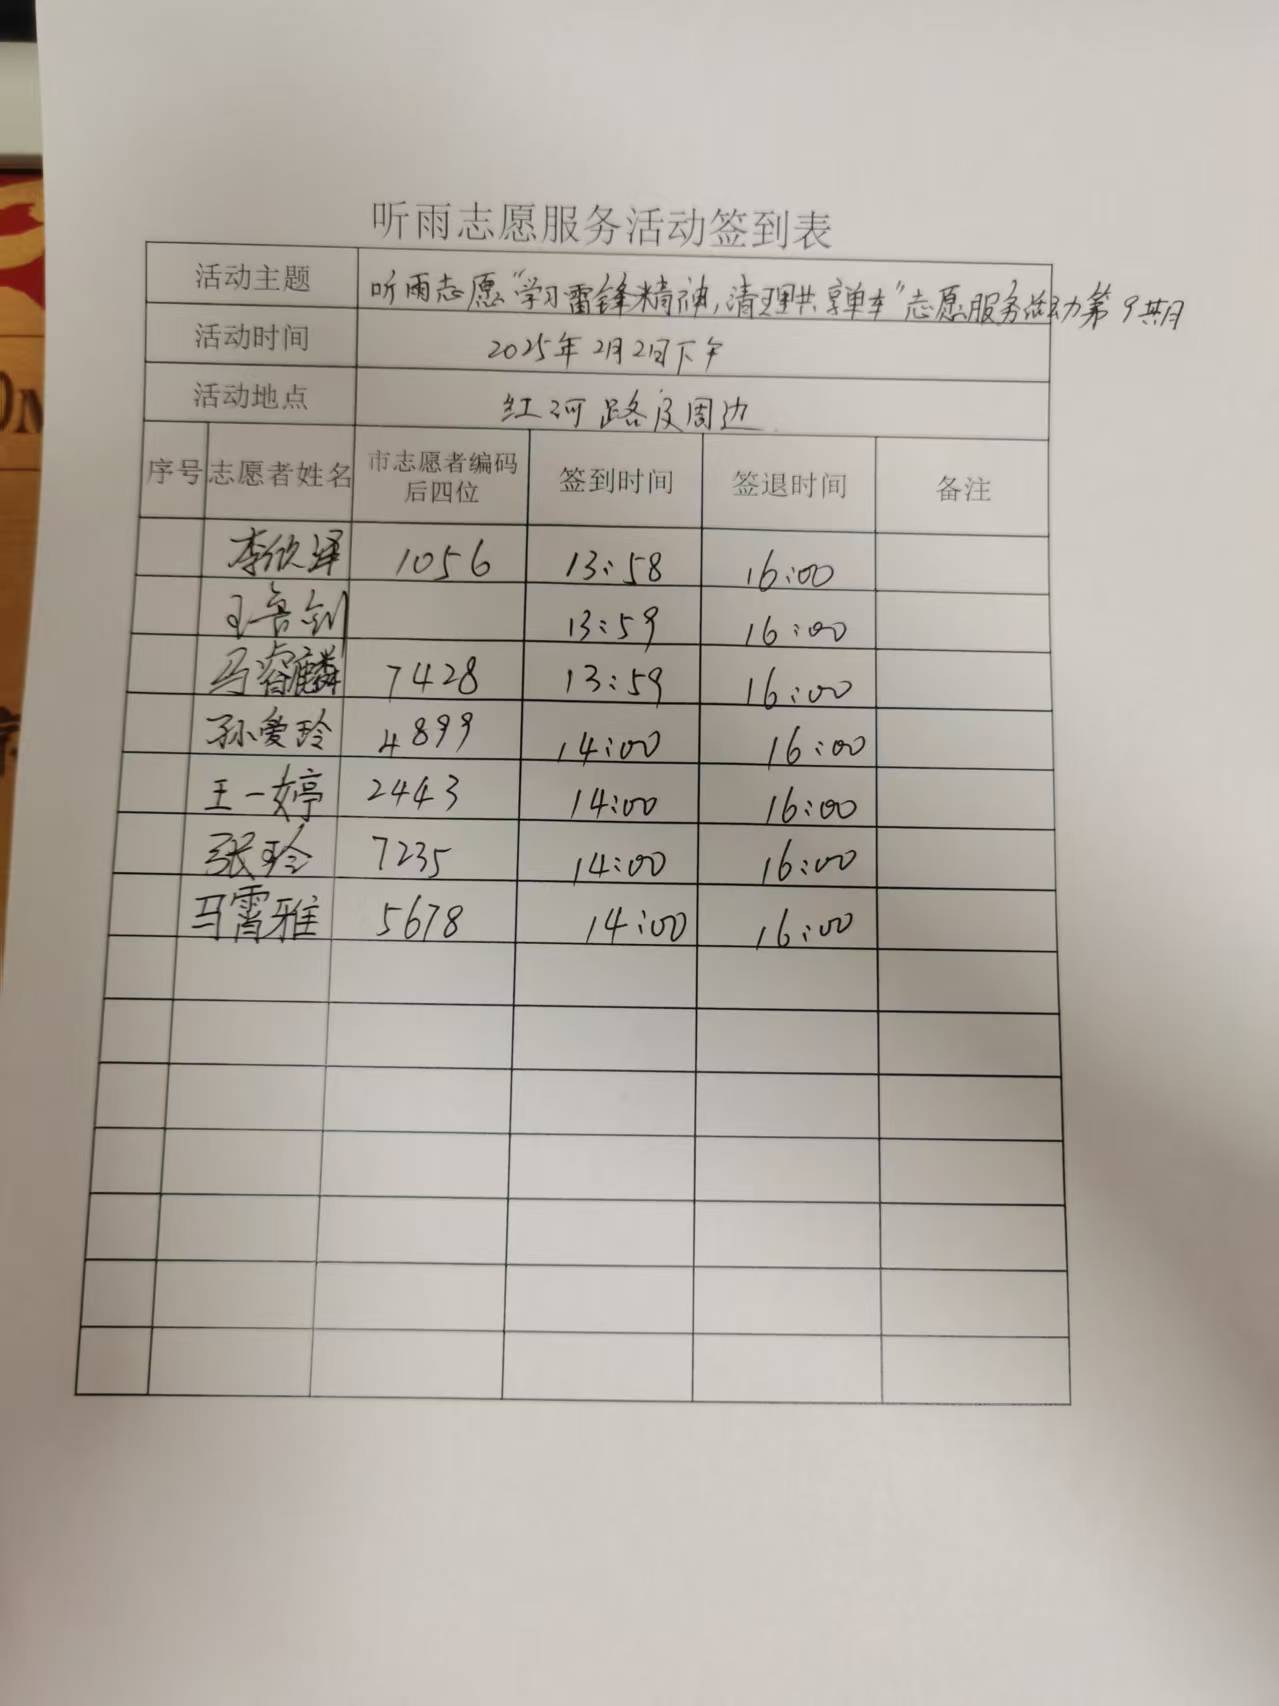 听雨志愿服务活动签到表
活动主题 听雨志愿“学习雷锋精神,清理共享单车”志愿服务活动第9期
活动时间 2025年2月2日下午
活动地点 红河路及周边
序号 志愿者姓名 市志愿者编码后四位 签到时间 签退时间 备注
李欣泽 1056 13:58 16:00
王鲁剑 13:59 16:00
马睿麟 7428 13:59 16:00
孙爱玲 4899 14:00 16:00
王一婷 2443 14:00 16:00
张玲 7235 14:00 16:00
马霄雅 5678 14:00 16:00